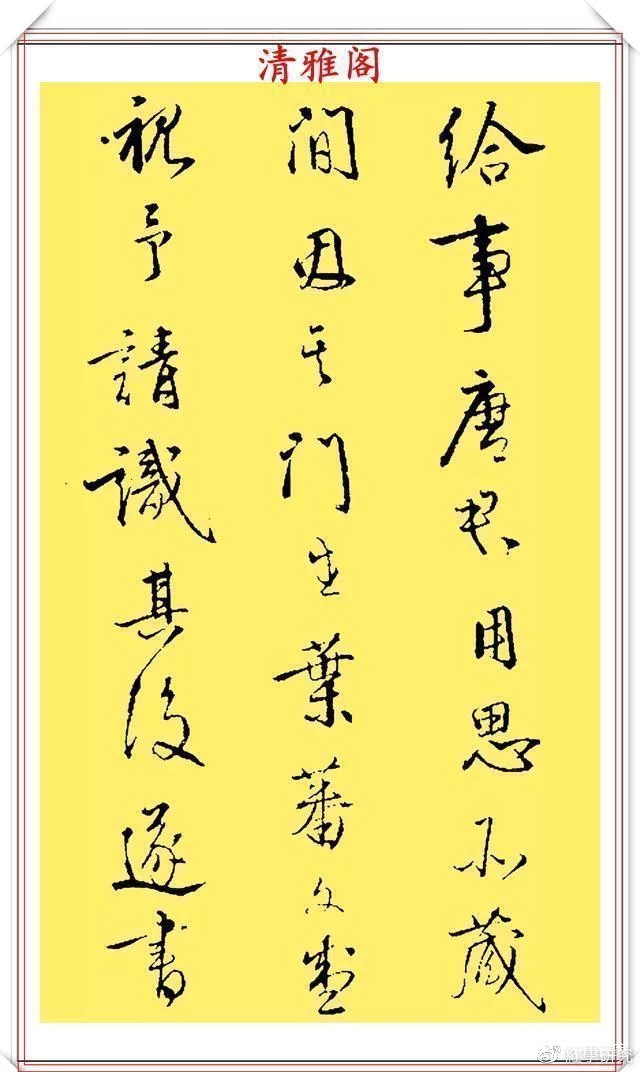 清雅阁
給事唐君用思所藏
間因其門生葉蕃文
視予請識其後遂書